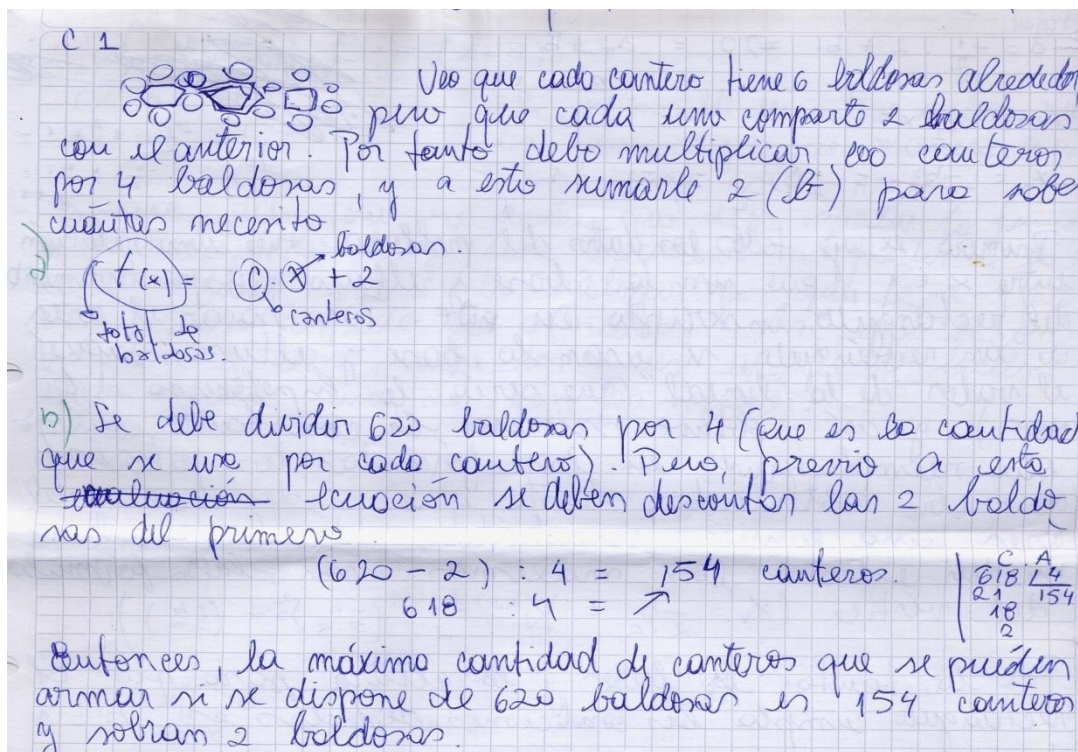 C 1
Veo que cada cantero tiene 6 baldosas alrededor
pero que cada uno comparte 2 baldosas
con el anterior. Por tanto debo multiplicar los canteros
por 4 baldosas, y a esto sumarle 2 (b) para sabe
cuántas necesito
a) f(x) = C . x + 2
baldosas.
canteros
total de
baldosas.
b) Se debe dividir 620 baldosas por 4 (que es la cantidad
que se usa por cada cantero). Pero, previo a esta
ecuación se deben descontar las 2 baldo
sas del primero.
(620 - 2) : 4 = 154 canteros.
618 : 4 =
C. A
618 14
21 154
18
2
Entonces, la máxima cantidad de canteros que se pueden
armar si se dispone de 620 baldosas es 154 canteros
y sobran 2 baldosas.